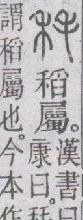 秏 稻屬。漢書
康曰。秏
謂稻屬也。今本作